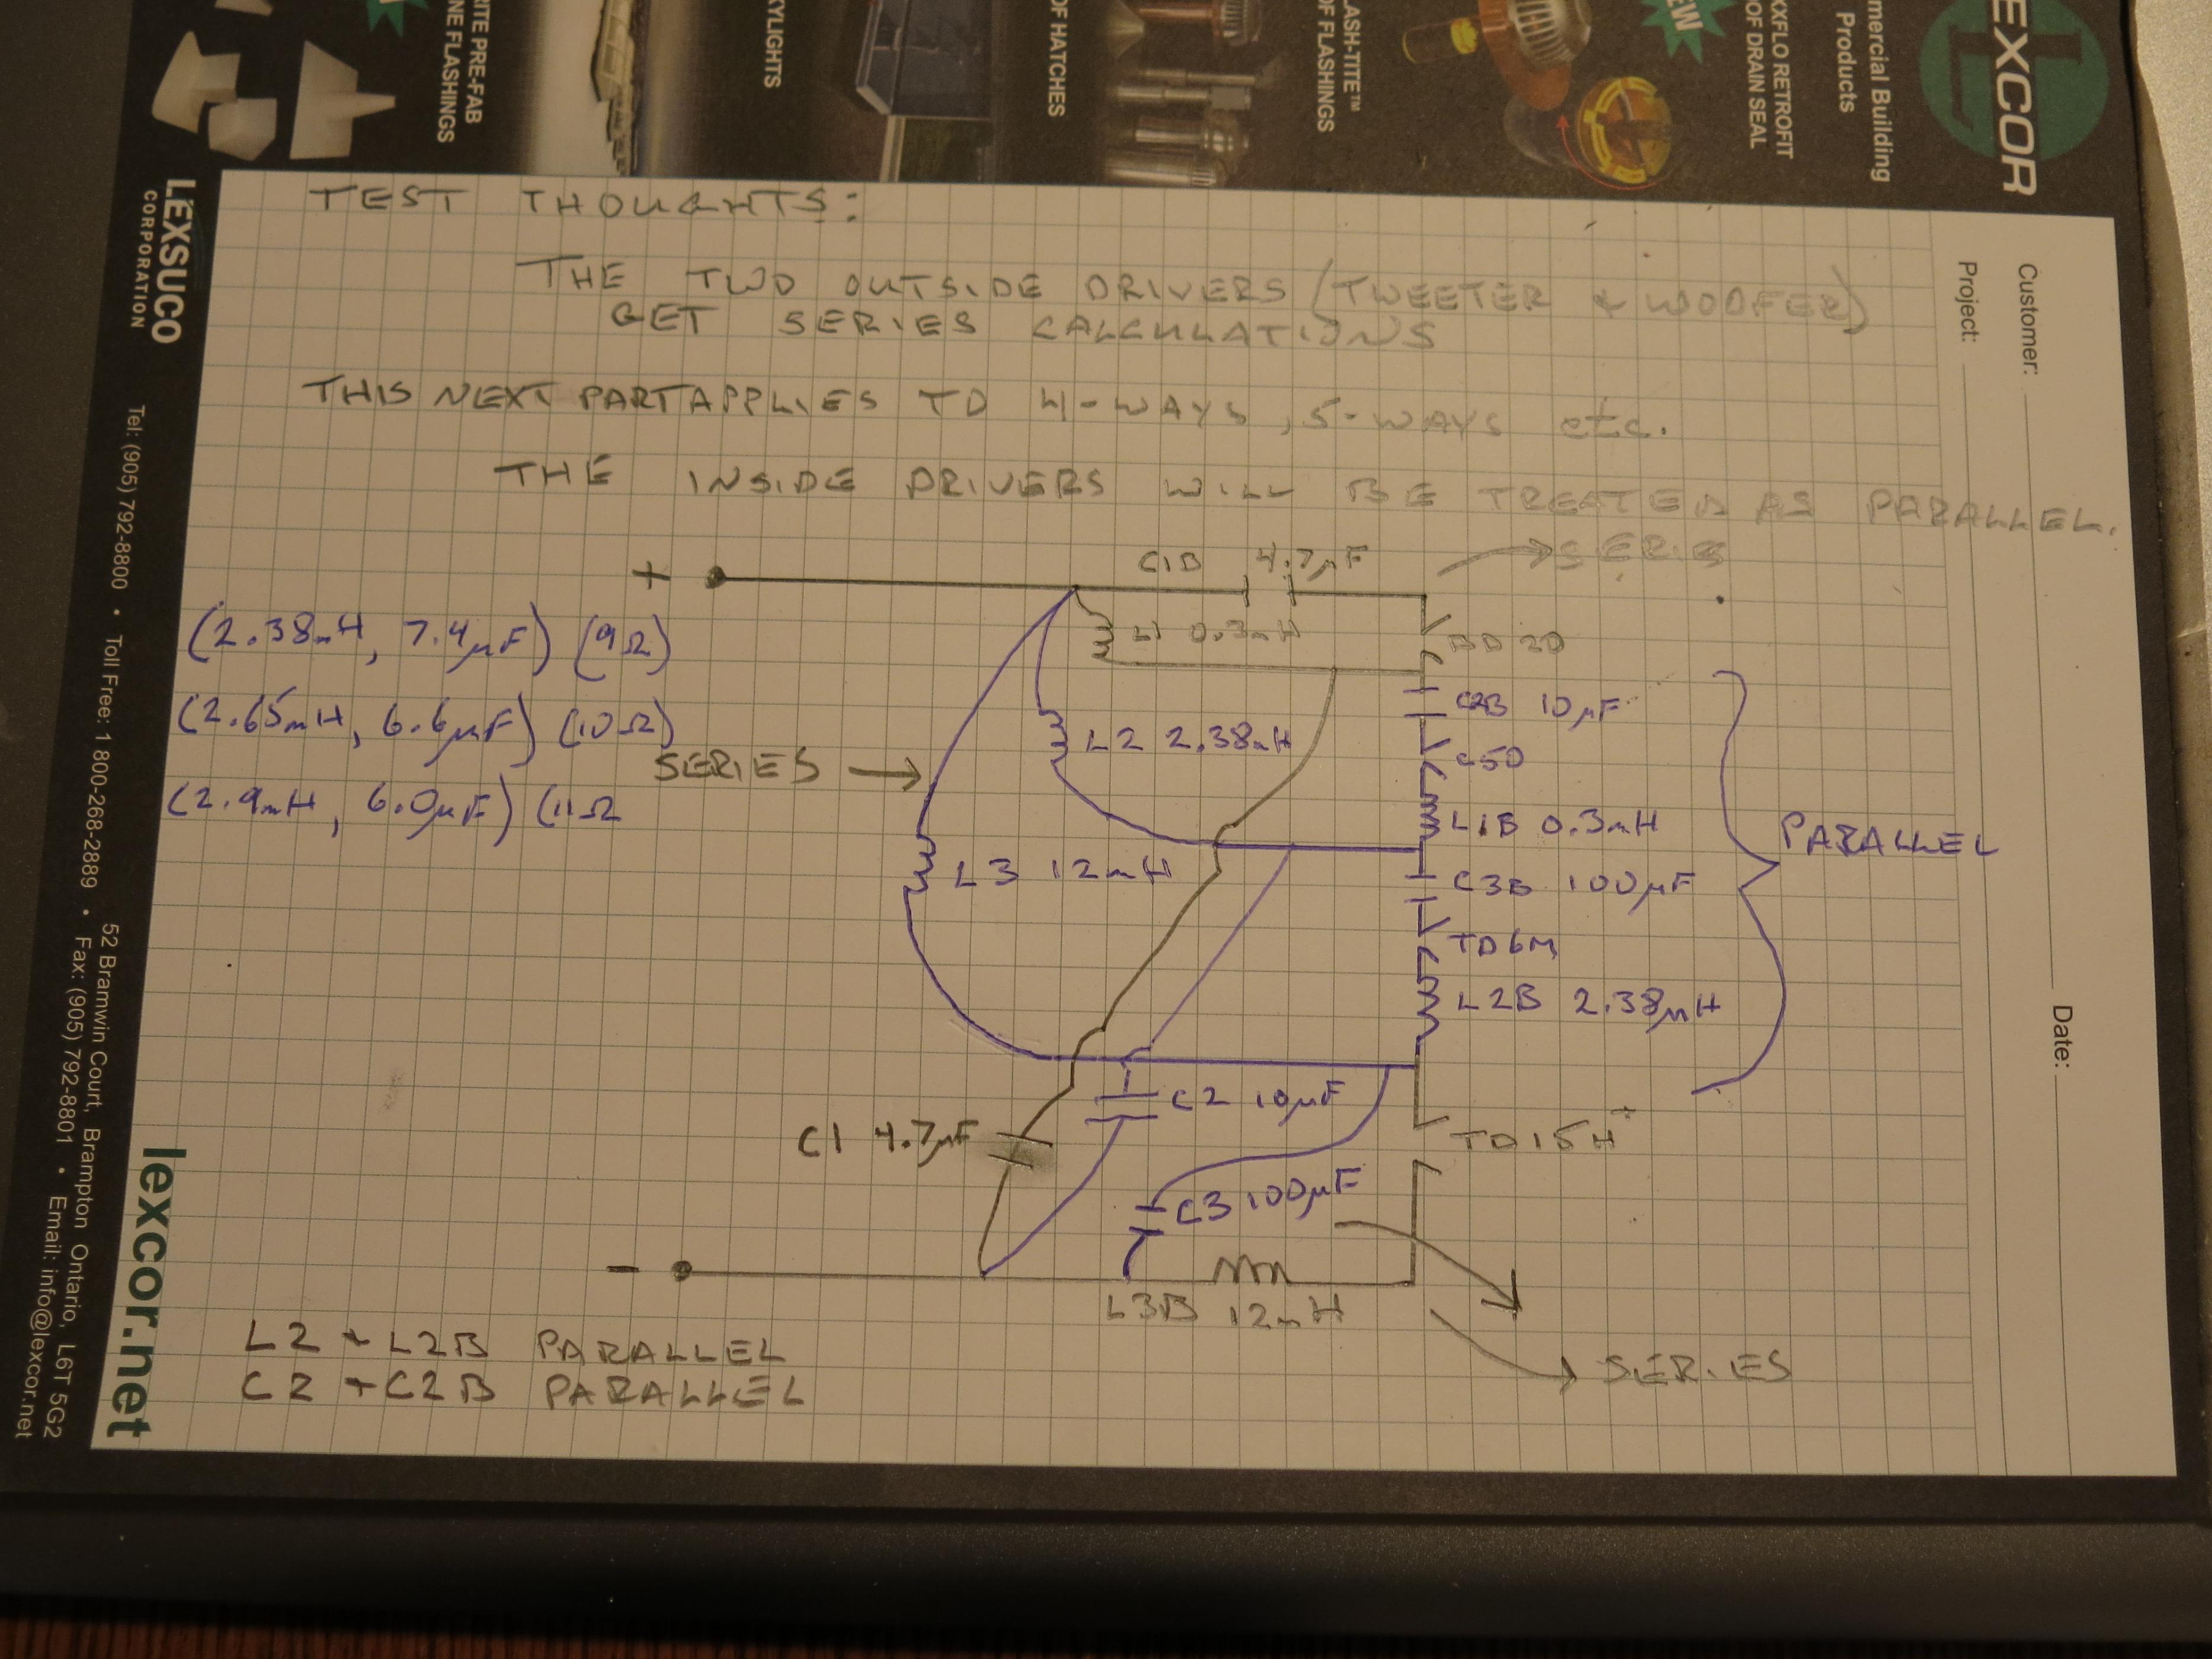 EXCOR
mercial Building
Products
XXFLO RETROFIT
OOF DRAIN SEAL
EW
ASH-TITE™
OF FLASHINGS
OF HATCHES
KYLIGHTS
RITE PRE-FAB
NE FLASHINGS
Customer:
Project:
Date:
TEST THOUGHTS:
THE TWO OUTSIDE DRIVERS (TWEETER & WOOFER)
GET SERIES CALCULATIONS
THIS NEXT PART APPLIES TO 4-WAYS, 5-WAYS etc.
THE INSIDE DRIVERS WILL BE TREATED AS PARALLEL.
SERIES
+
C1B 4.7µF
L1 0.3mH
C2B 10µF
C50
L1B 0.3mH
C3B 100µF
TD6M
L2B 2.38mH
PARALLEL
TD15H+
(2.38mH, 7.4µF) (9Ω)
(2.65mH, 6.6µF) (10Ω)
(2.9mH, 6.0µF) (11Ω
SERIES
L2 2.38mH
L3 12mH
C2 10µF
C1 4.7µF
C3 100µF
-
L3B 12mH
SERIES
L2 + L2B PARALLEL
C2 + C2B PARALLEL
LEXSUCO
CORPORATION
Tel: (905) 792-8800 • Toll Free: 1 800-268-2889 • Fax: (905) 792-8801 • Email: info@lexcor.net
52 Bramwin Court, Brampton Ontario, L6T 5G2
lexcor.net